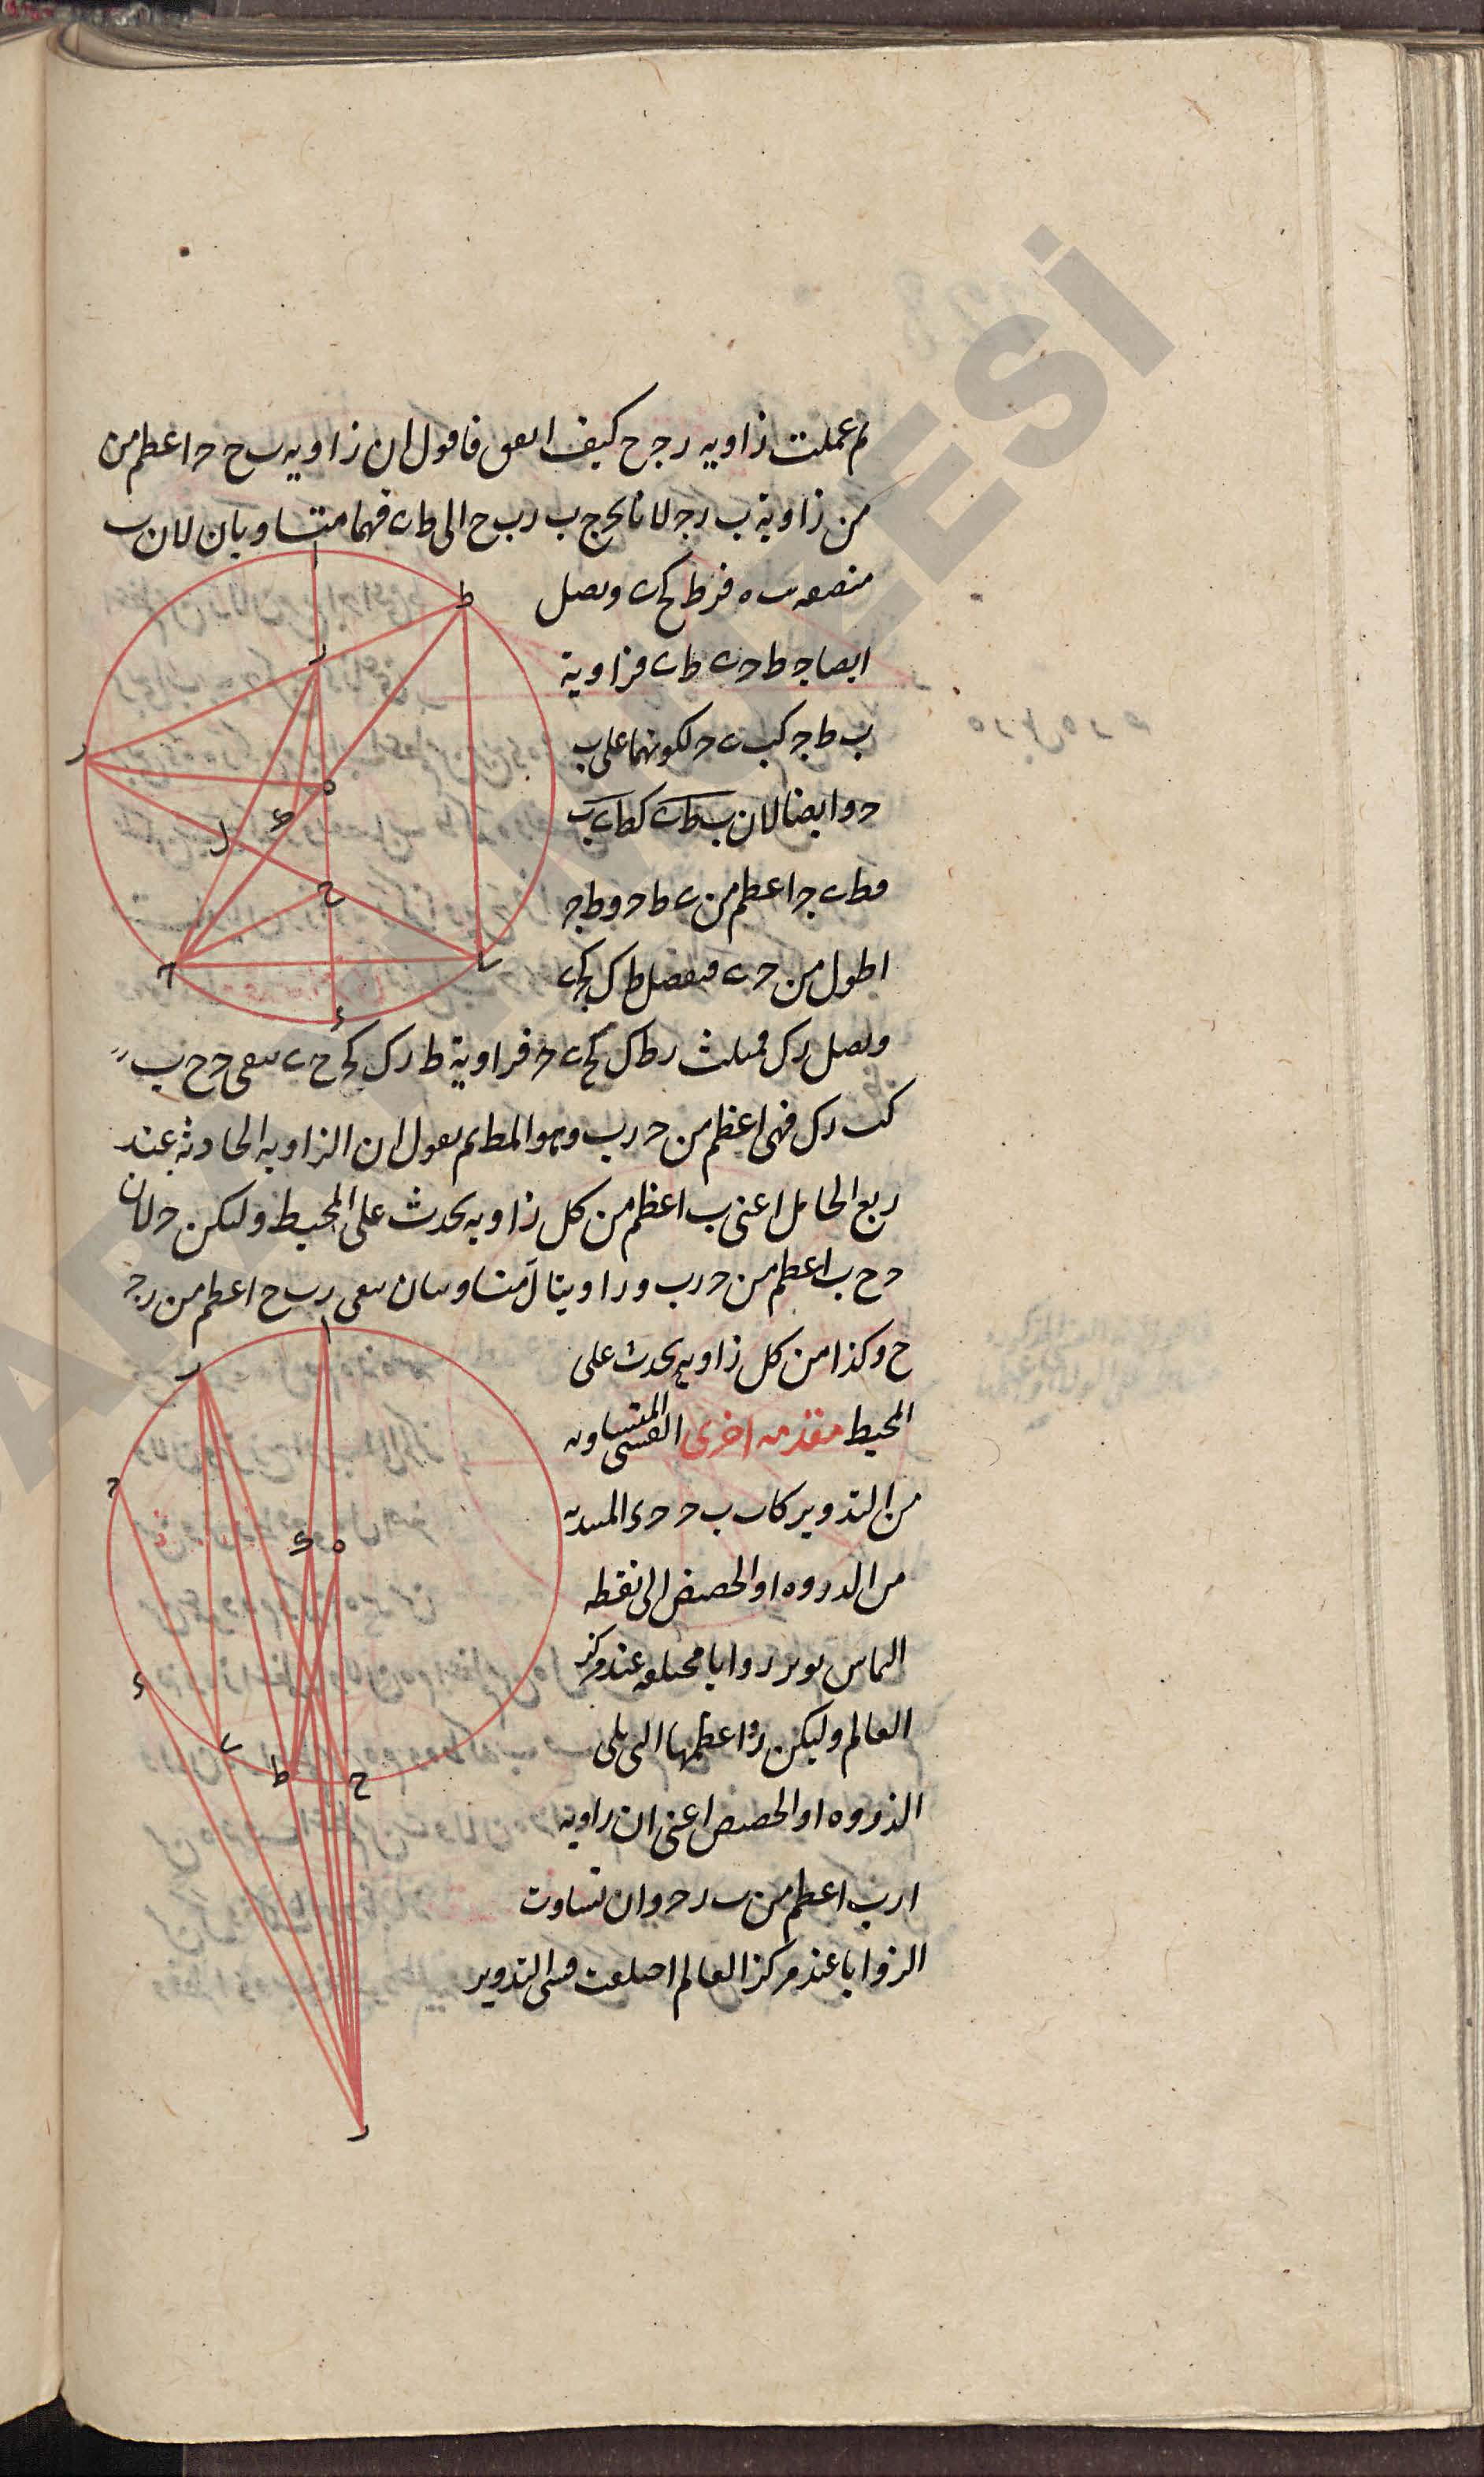 ثم عملت زاويه ر ج ح كيف اتفق فاقول ان زاويه ب ح ج اعظم من
من زاوية ب ر ج لانا نخرج ب ر ب ح الى ط ى فهما متساويان لان ب
منصفه فر ط كح ى ونصل
ايضا ج ط ج ى ط ى فزاوية
ب ط ج كب ى ج لكونهما على ب
ج وايضا لان ب ط ى كط ى ب
فط ى ج اعظم من ى ط ج وط ج
اطول من ج ى فنفصل ط ك كج ى
ونصل ر ك فمثلث ر ط ك كح ى ج فزاوية ط ر ك كج ح ى نبقى ج ح ب
كب ر ك فهى اعظم من ج ر ب وهو المط ثم نقول ان الزاويه الحادثه عند
ربع الحامل اعنى ب اعظم من كل زاويه تحدث على المحيط وليكن ج لان
ج ح ب اعظم من ج ر ب وزاويتا ل متساويتان نبقى ر ب ح اعظم من ر ج
ح وكذا من كل زاويه تحدث على
المحيط مقدمه اخرى القسى المتساويه
من التدوير كاب ب ج ج ى المبتديه
من الذروه او الحضيض الى نقطه
التماس توتر زوايا مختلفه عند مركز
العالم وليكن ر واعظمها التى تلى
الذروه او الحضيض اعنى ان زاويه
ا ر ب اعظم من ب ر ج وان تساوت
الزوايا عند مركز العالم اختلفت قسى التدوير
ا
ط
ر
ج
ه
ى
ل
ح
ا
ر
ج
ى
ه
ط
ح
ر